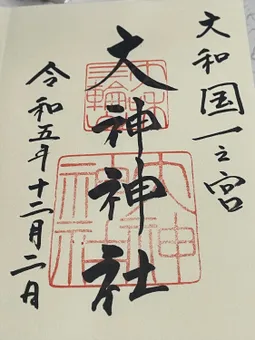 大和国一之宮
大神神社
令和五年十二月二日
三輪
大神
神社